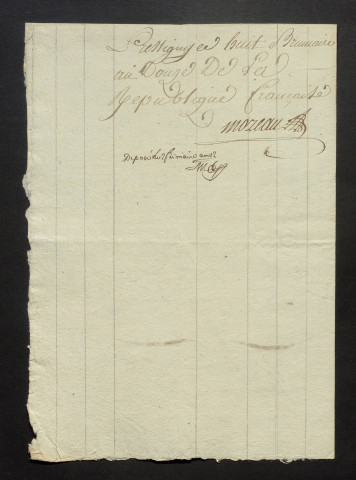 Pressigny ce huit Brumaire
an Douze De La
Republique française
moreau
Deposé le frimaire an 12